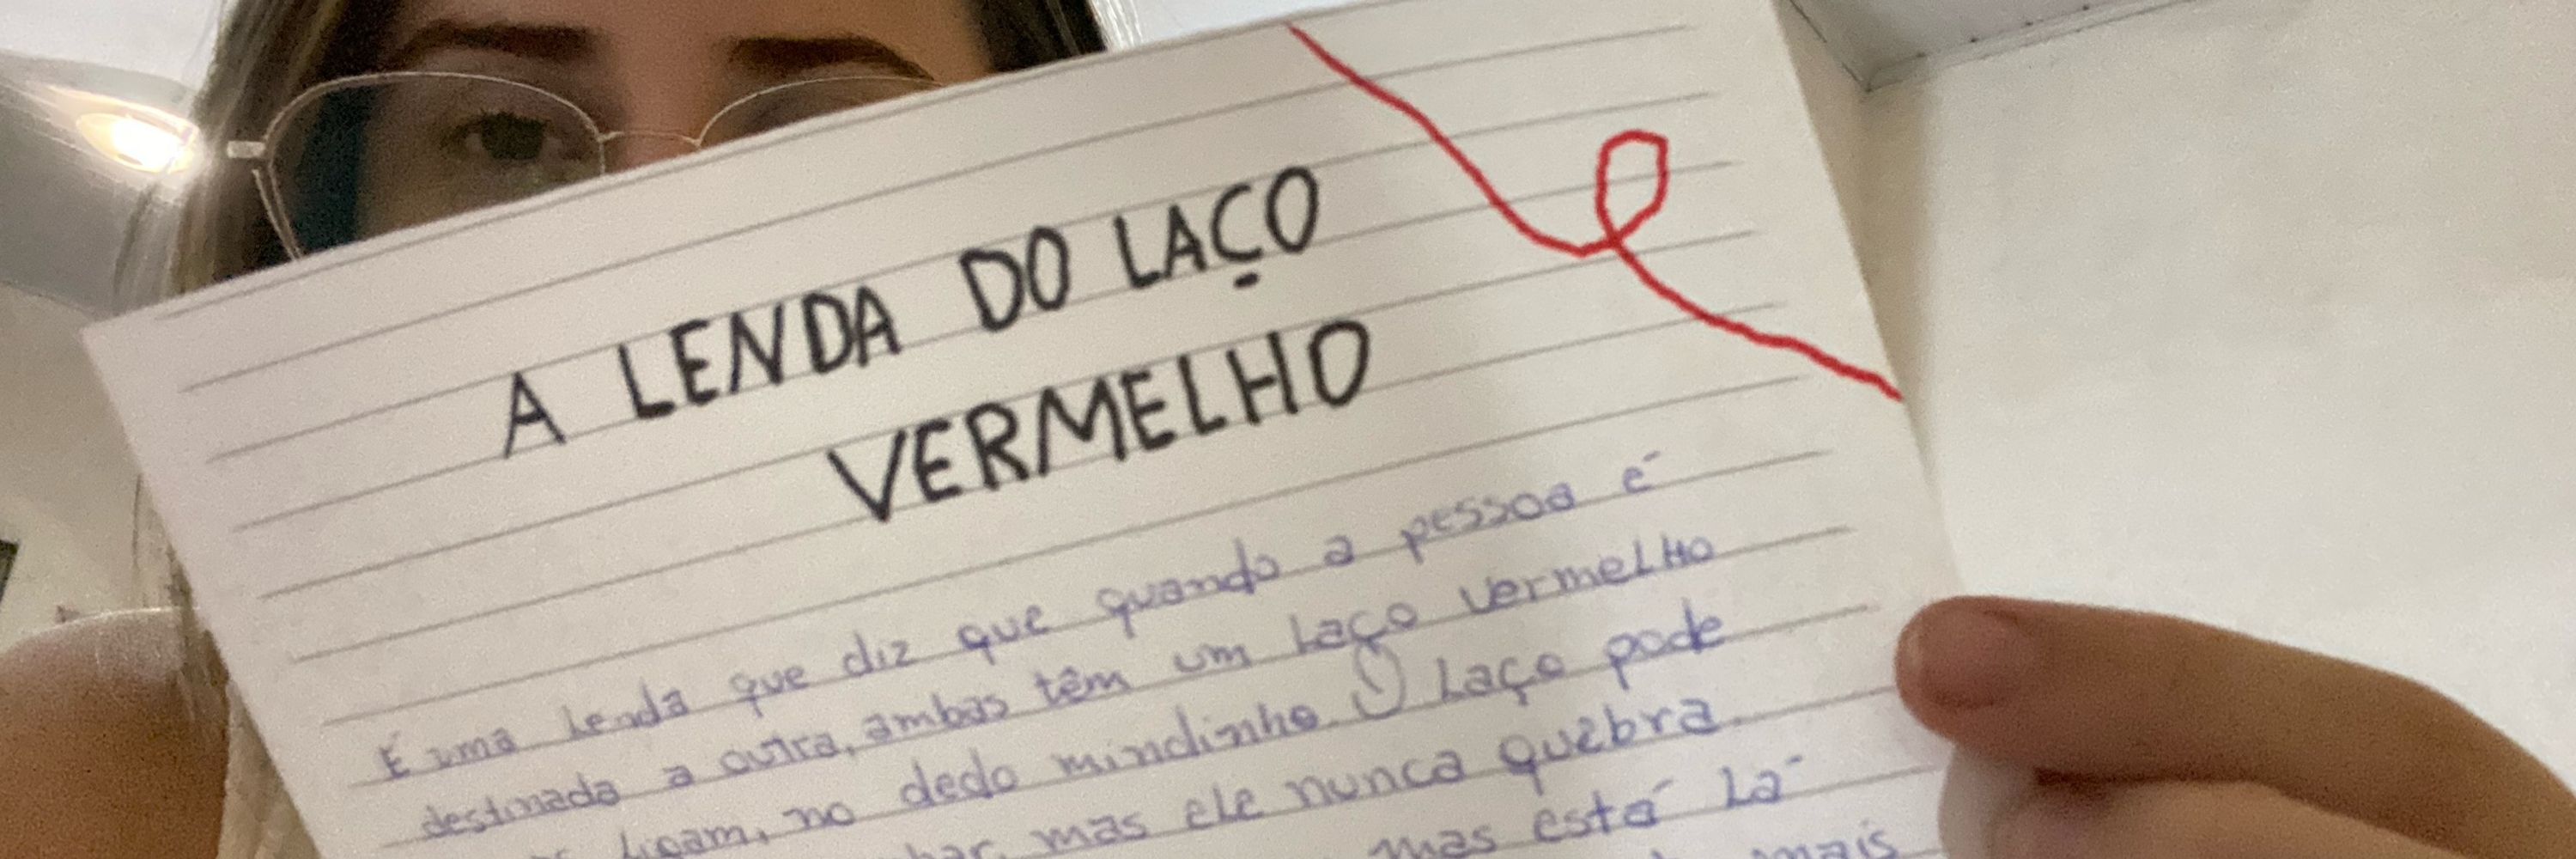 A LENDA DO LAÇO
VERMELHO
É uma Lenda que diz que quando a pessoa é
destinada a outra, ambas têm um Laço vermeLHo
Ligam, no dedo mindinho. O Laço pode
mas ele nunca quebra.
mas está Lá
mais